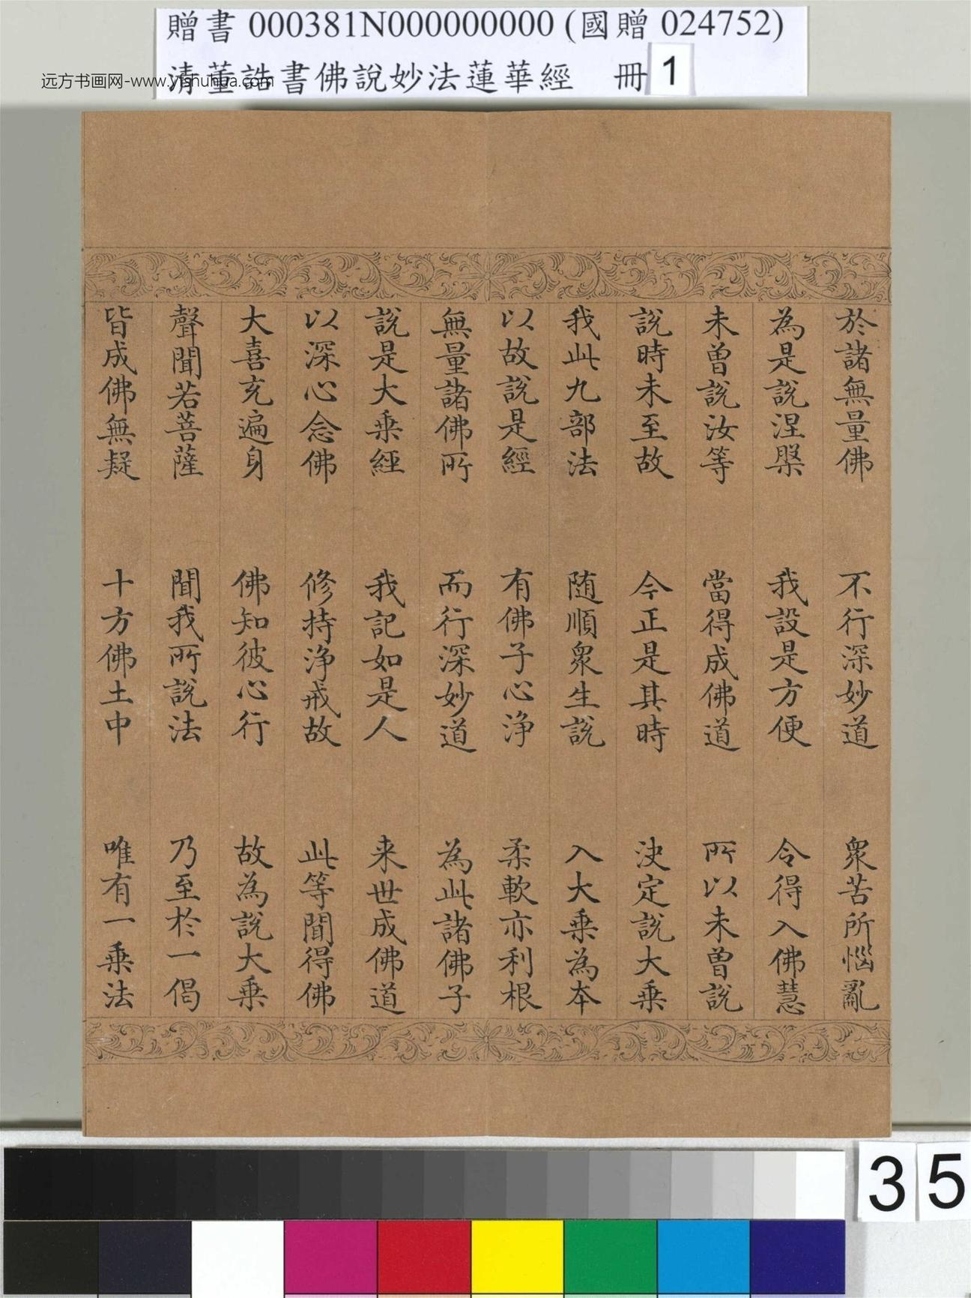 贈書 000381N000000000 (國贈 024752)
清董誥書佛說妙法蓮華經 冊 1
远方书画网-www.yishuhua.com
於諸無量佛 不行深妙道 衆苦所惱亂
為是說涅槃 我設是方便 令得入佛慧
未曾說汝等 當得成佛道 所以未曾說
說時未至故 今正是其時 決定說大乘
我此九部法 随順衆生說 入大乘為本
以故說是經 有佛子心淨 柔軟亦利根
無量諸佛所 而行深妙道 為此諸佛子
說是大乘經 我記如是人 来世成佛道
以深心念佛 修持淨戒故 此等聞得佛
大喜充遍身 佛知彼心行 故為說大乘
聲聞若菩薩 聞我所說法 乃至於一偈
皆成佛無疑 十方佛土中 唯有一乘法
35